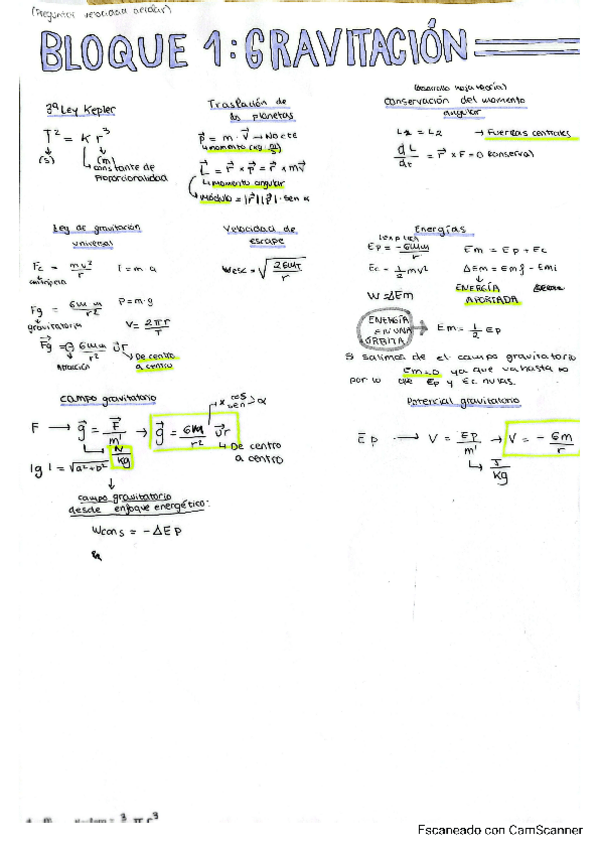 (Preguntar velocidad areolar)
BLOQUE 1: GRAVITACIÓN
3ª Ley Kepler
T² = K r³
(s) (m)
constante de
proporcionalidad
Traslación de
los planetas
p⃗ = m · v⃗ → No cte
momento (kg m/s)
L⃗ = r⃗ × p⃗ = r⃗ ∧ mv⃗
momento angular
Módulo = |r⃗| |p⃗| · sen α
(desarrollo hoja teoría)
conservación del momento
angular
L₂ = L₂ → Fuerzas centrales
dL/dt = r⃗ × F = 0 conserva
Ley de gravitación
universal
Fc = mv²/r F = m a
centrípeta
Fg = GMm/r² P = m·g
gravitatoria V = 2πr/T
F⃗g = - GMm/r² u⃗r De centro
a centro
atracción
Velocidad de
escape
Vesc = √(2GMT/r)
Energías
Ep = -GMm/r Em = Ep + Ec
Ec = 1/2 mv² ΔEm = Emf - Emi
ENERGÍA
APORTADA
W = ΔEm
ENERGÍA
EN UNA
ÓRBITA
→ Em = 1/2 Ep
Si salimos de el campo gravitatorio
Em=0 ya que va hasta ∞
por lo que Ep y Ec nulas.
campo gravitatorio
F → g⃗ = F⃗/m' → g⃗ = GM/r² u⃗r
N/kg
De centro
a centro
|g| = √a²+b²
campo gravitatorio
desde enfoque energético:
Wcons = -ΔEp
Potencial gravitatorio
Ep → V = Ep/m' → V = - GM/r
J/kg
Escaneado con CamScanner